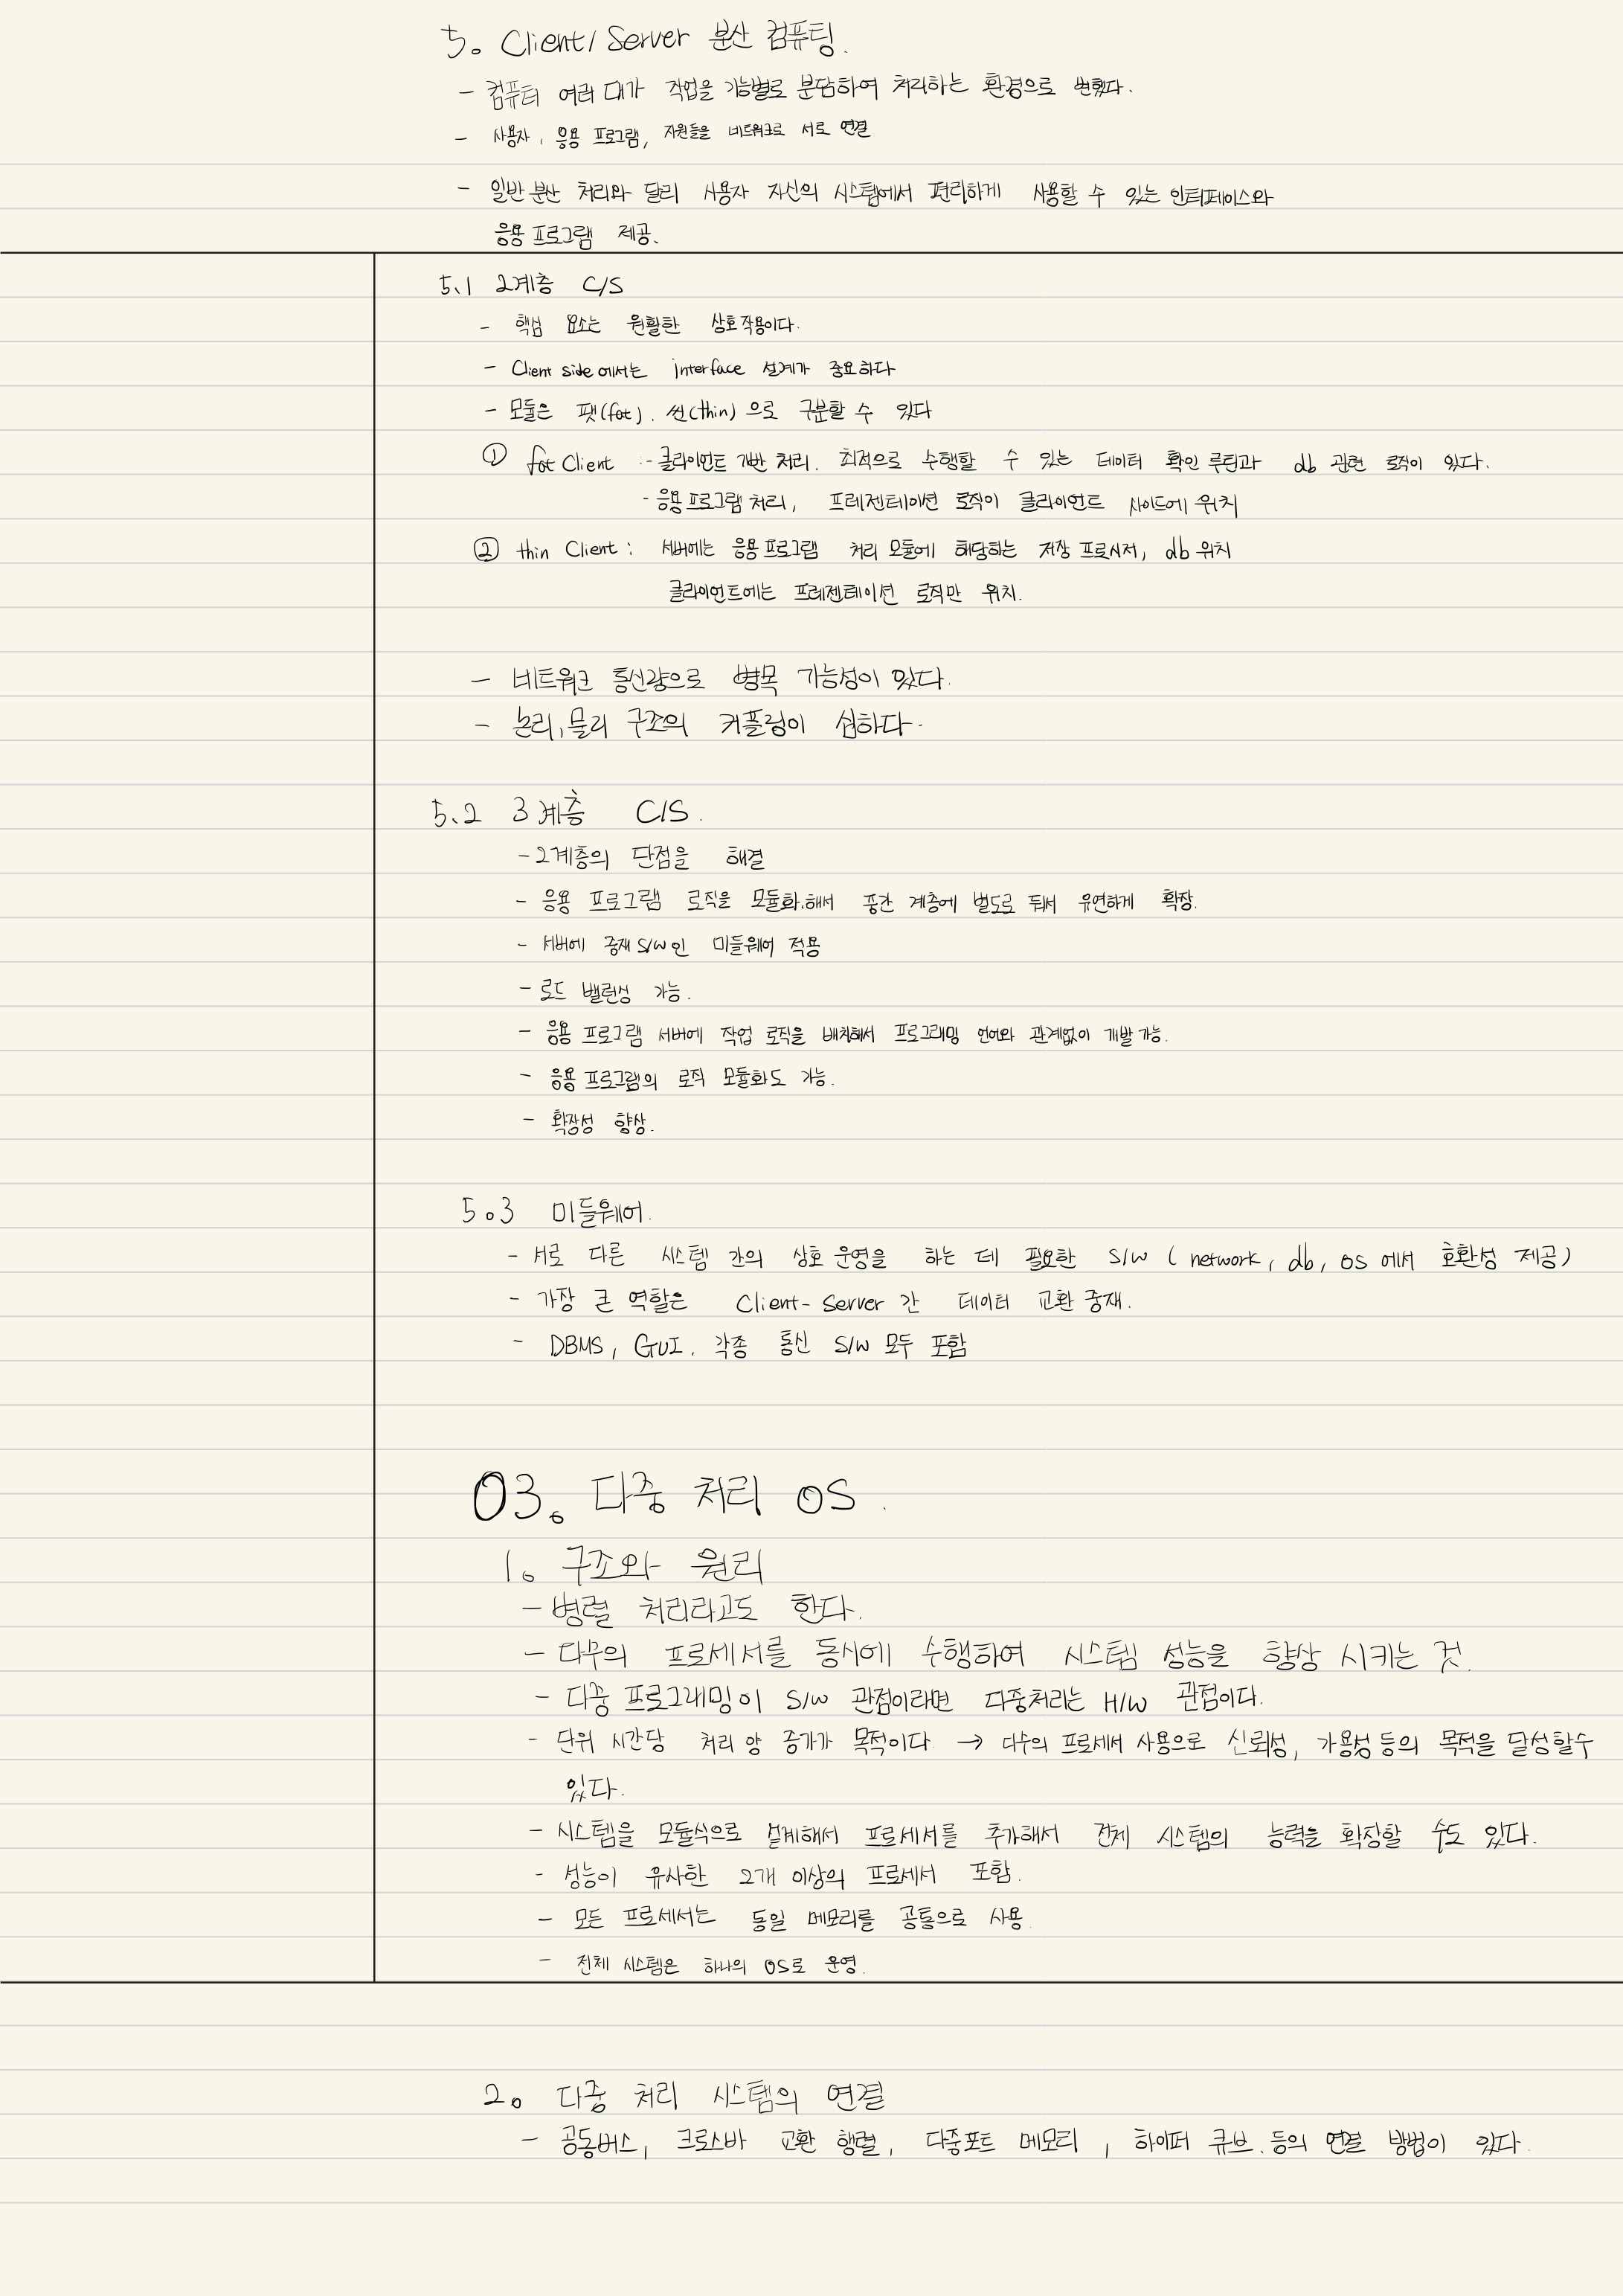 5. Client/Server 분산 컴퓨팅.
- 컴퓨터 여러 대가 작업을 기능별로 분담하여 처리하는 환경으로 변했다.
- 사용자, 응용 프로그램, 자원들을 네트워크로 서로 연결
- 일반 분산 처리와 달리 사용자 자신의 시스템에서 편리하게 사용할 수 있는 인터페이스와
응용 프로그램 제공.
5.1 2계층 C/S
- 핵심 요소는 원활한 상호작용이다.
- Client side에서는 interface 설계가 중요하다
- 모듈은 팻(fat). 씬(thin)으로 구분할 수 있다
① fat Client :- 클라이언트 기반 처리. 최적으로 수행할 수 있는 데이터 확인 루틴과 db 관련 로직이 있다.
- 응용프로그램 처리, 프레젠테이션 로직이 클라이언트 사이드에 위치
② thin Client : 서버에는 응용프로그램 처리 모듈에 해당하는 저장 프로시저, db 위치
클라이언트에는 프레젠테이션 로직만 위치.
- 네트워크 통신량으로 병목 가능성이 있다.
- 논리, 물리 구조의 커플링이 심하다.
5.2 3계층 C/S.
- 2계층의 단점을 해결
- 응용 프로그램 로직을 모듈화.해서 중간 계층에 별도로 둬서 유연하게 확장.
- 서버에 중재 S/W인 미들웨어 적용
- 로드 밸런싱 가능.
- 응용 프로그램 서버에 작업 로직을 배치해서 프로그래밍 언어와 관계없이 개발 가능.
- 응용 프로그램의 로직 모듈화도 가능.
- 확장성 향상.
5.3 미들웨어.
- 서로 다른 시스템 간의 상호 운영을 하는 데 필요한 S/W ( network, db, OS 에서 호환성 제공)
- 가장 큰 역할은 Client-Server 간 데이터 교환 중재.
- DBMS, GUI. 각종 통신 S/W 모두 포함
03. 다중 처리 OS.
1. 구조와 원리
- 병렬 처리라고도 한다.
- 다수의 프로세서를 동시에 수행하여 시스템 성능을 향상 시키는 것.
- 다중 프로그래밍이 S/W 관점이라면 다중처리는 H/W 관점이다.
- 단위 시간당 처리 양 증가가 목적이다. → 다수의 프로세서 사용으로 신뢰성, 가용성 등의 목적을 달성할수
있다.
- 시스템을 모듈식으로 설계해서 프로세서를 추가해서 전체 시스템의 능력을 확장할 수도 있다.
- 성능이 유사한 2개 이상의 프로세서 포함.
- 모든 프로세서는 동일 메모리를 공통으로 사용.
- 전체 시스템은 하나의 OS로 운영.
2. 다중 처리 시스템의 연결
- 공동버스, 크로스바 교환 행렬, 다중포트 메모리, 하이퍼 큐브.등의 연결 방법이 있다.